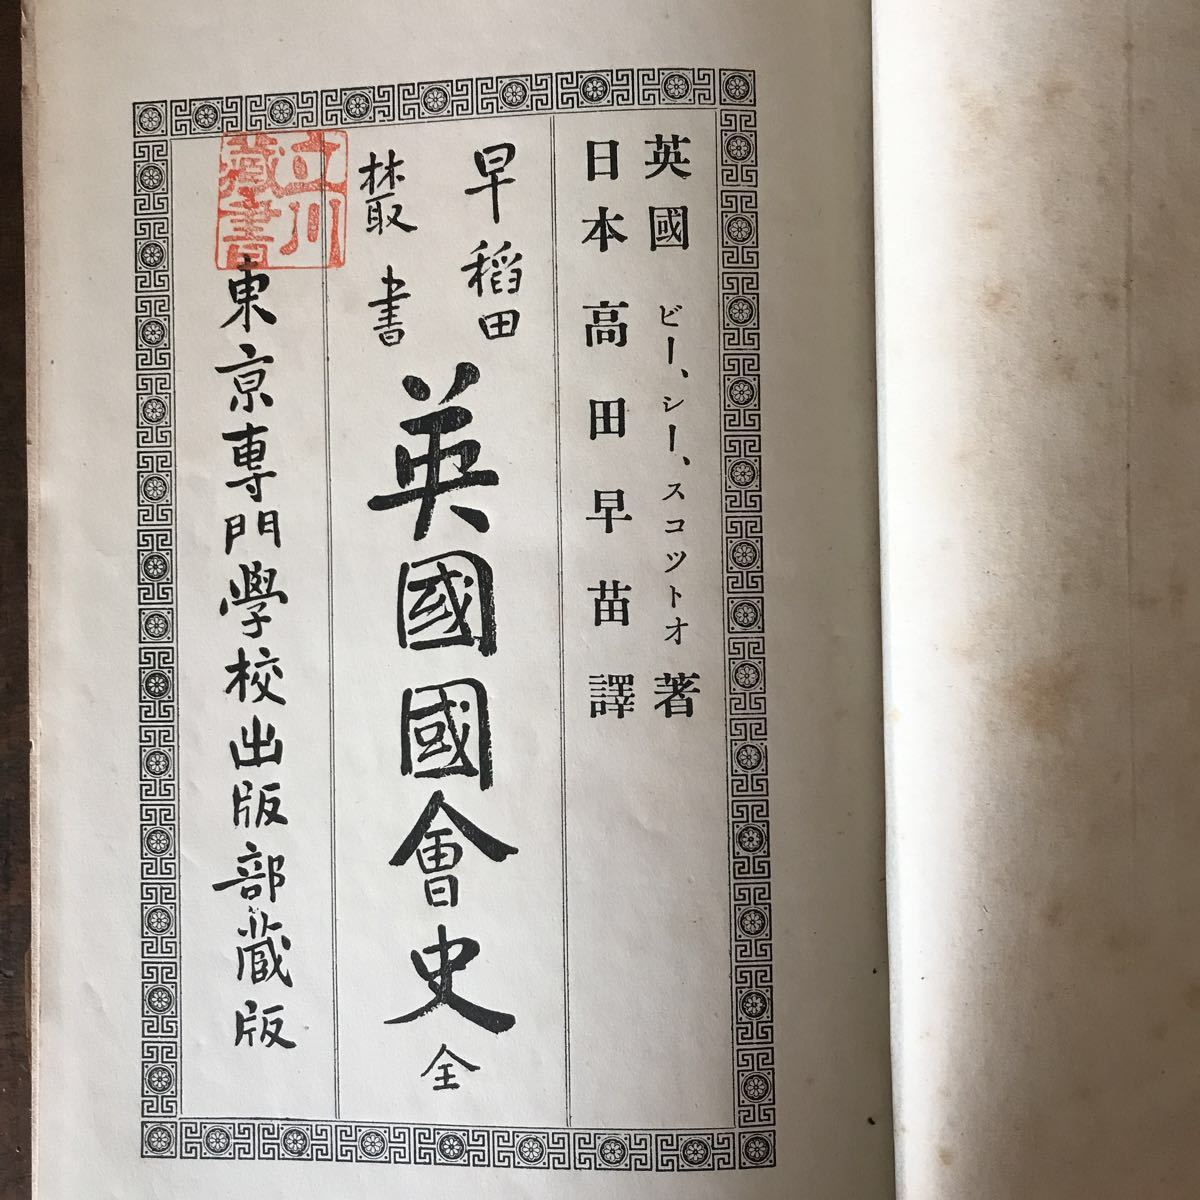 英國 ビー、シー、スコツトオ 著
日本 高田早苗 譯
早稻田
叢書
英國國會史 全
東京專門學校出版部藏版
立川
藏書